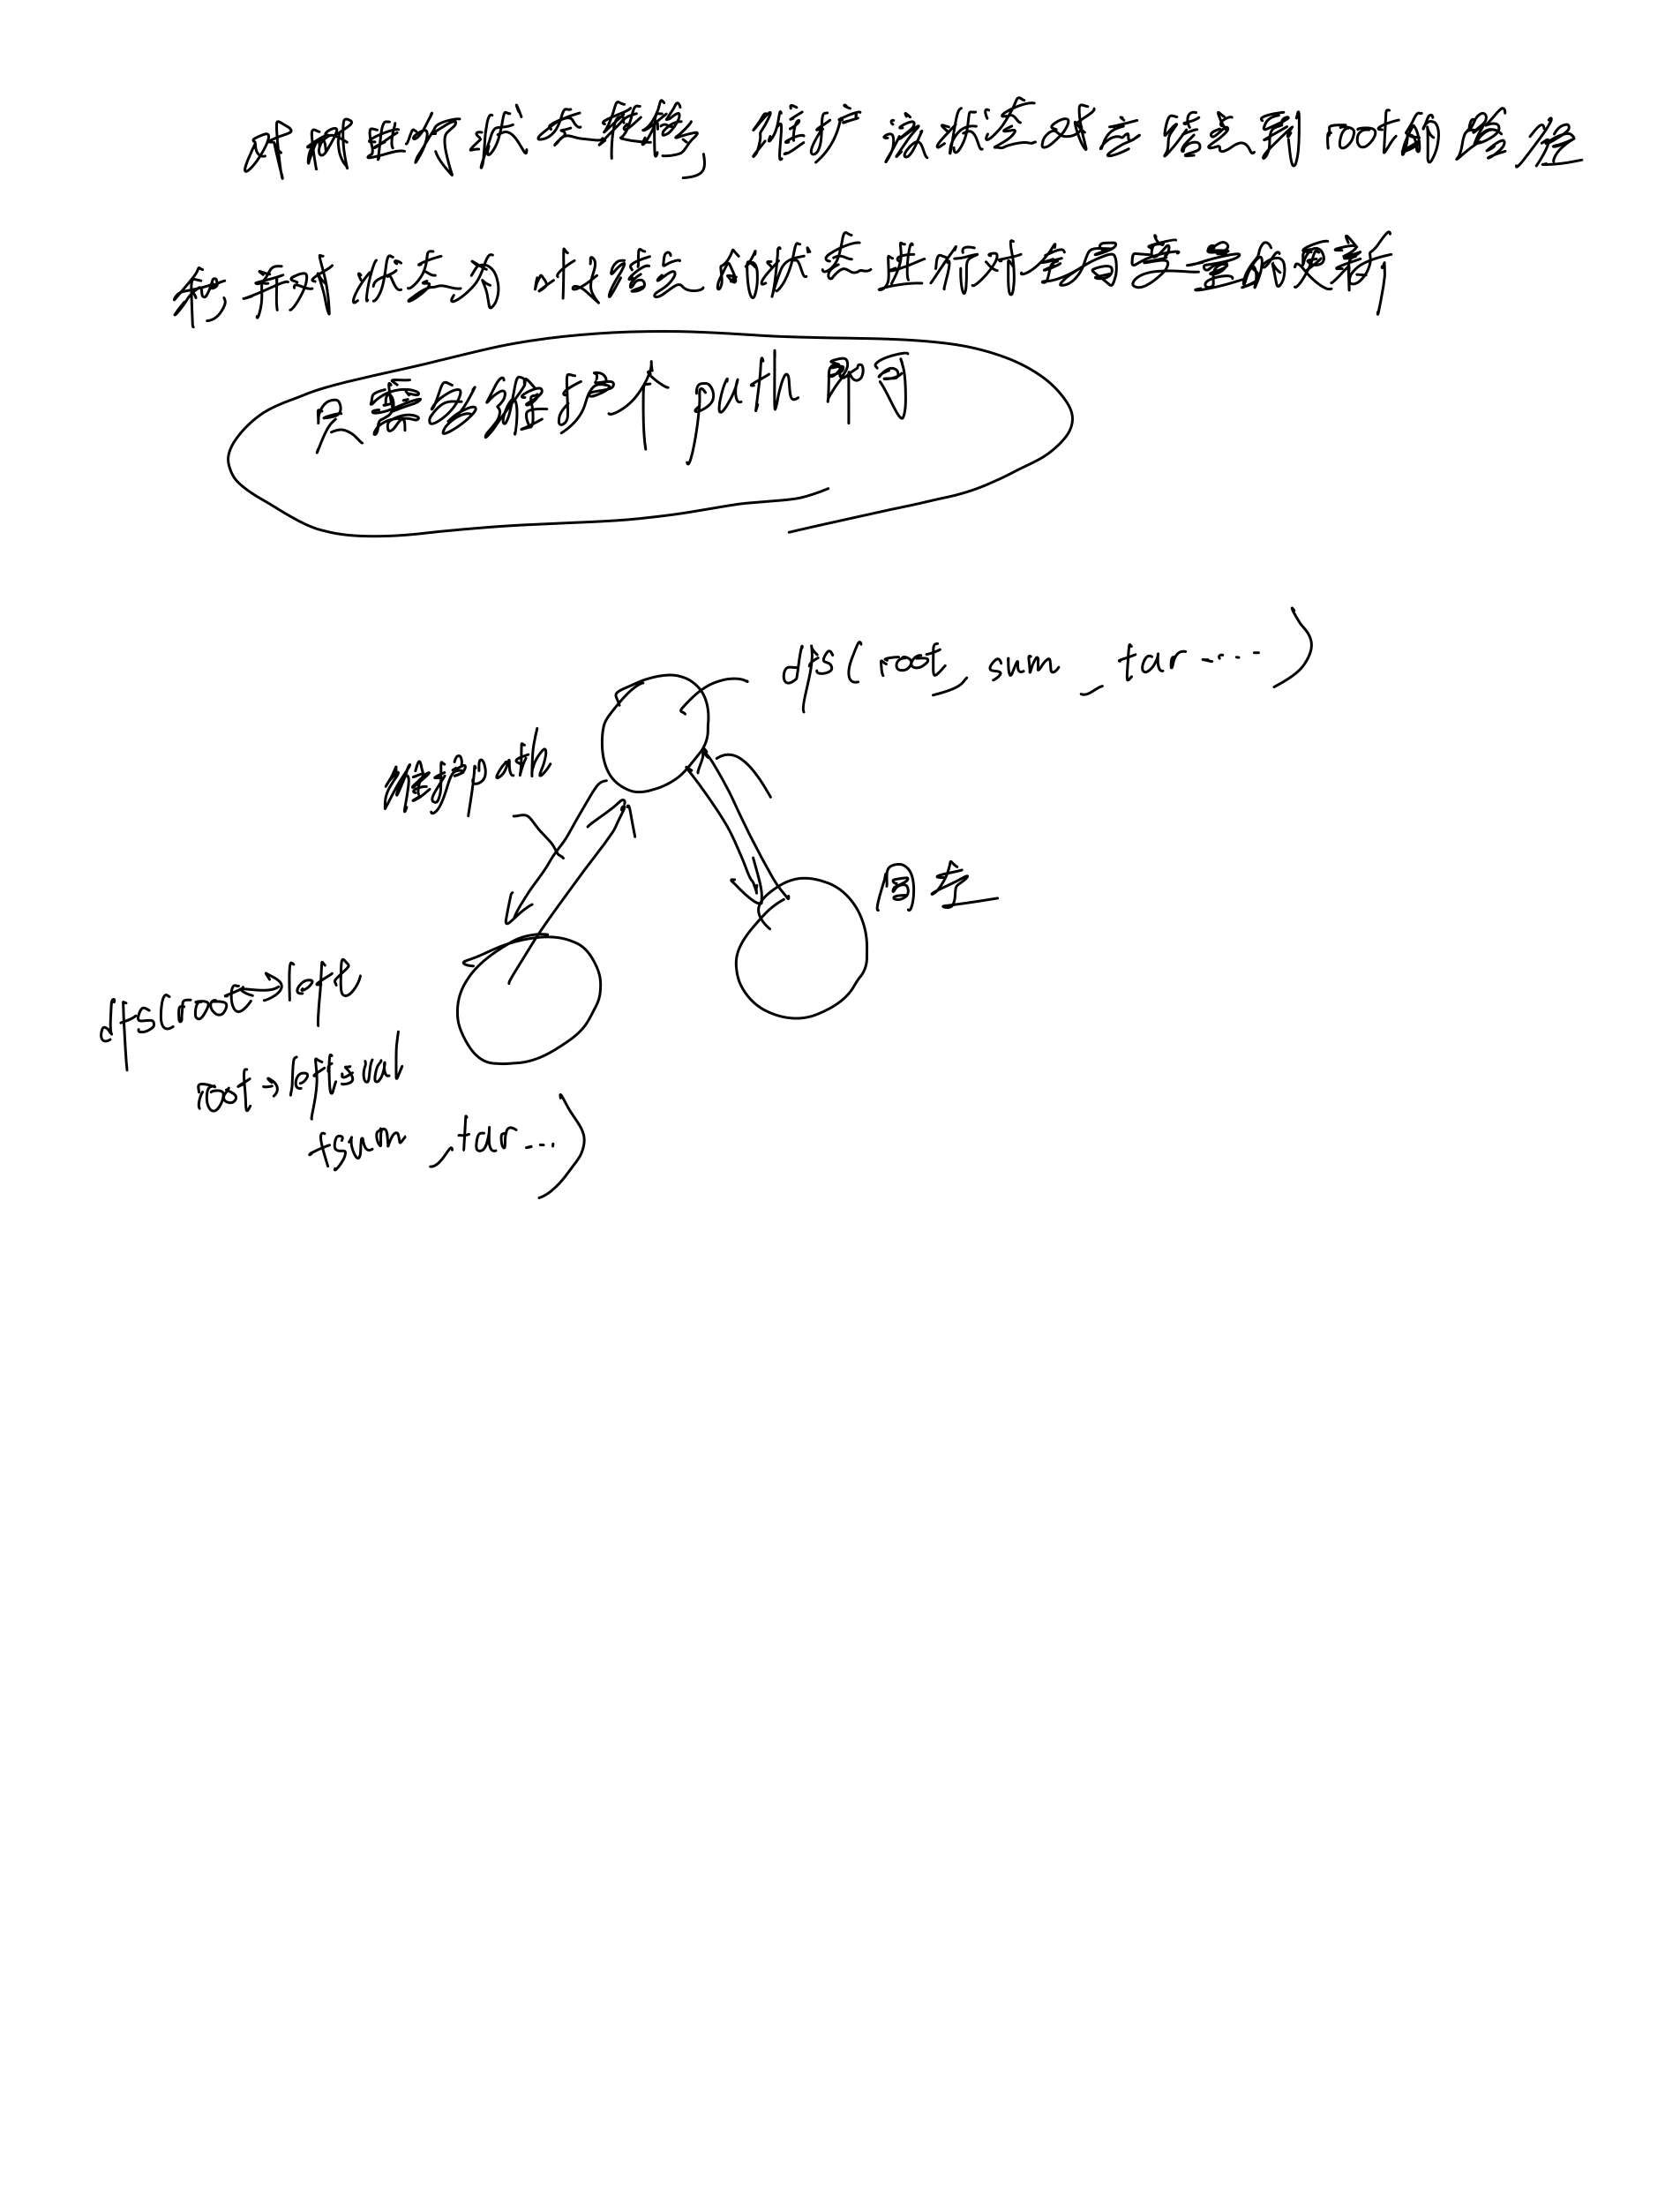 对树进行状态转移, 维护该状态对应结点到root的路径
和,并对状态为叶结点的状态进行对全局变量的更新
只需多维护个path即可
dfs(root, sum, tar.....)
维护path
同左
dfs(root->left
root->left->val
+sum,tar...)